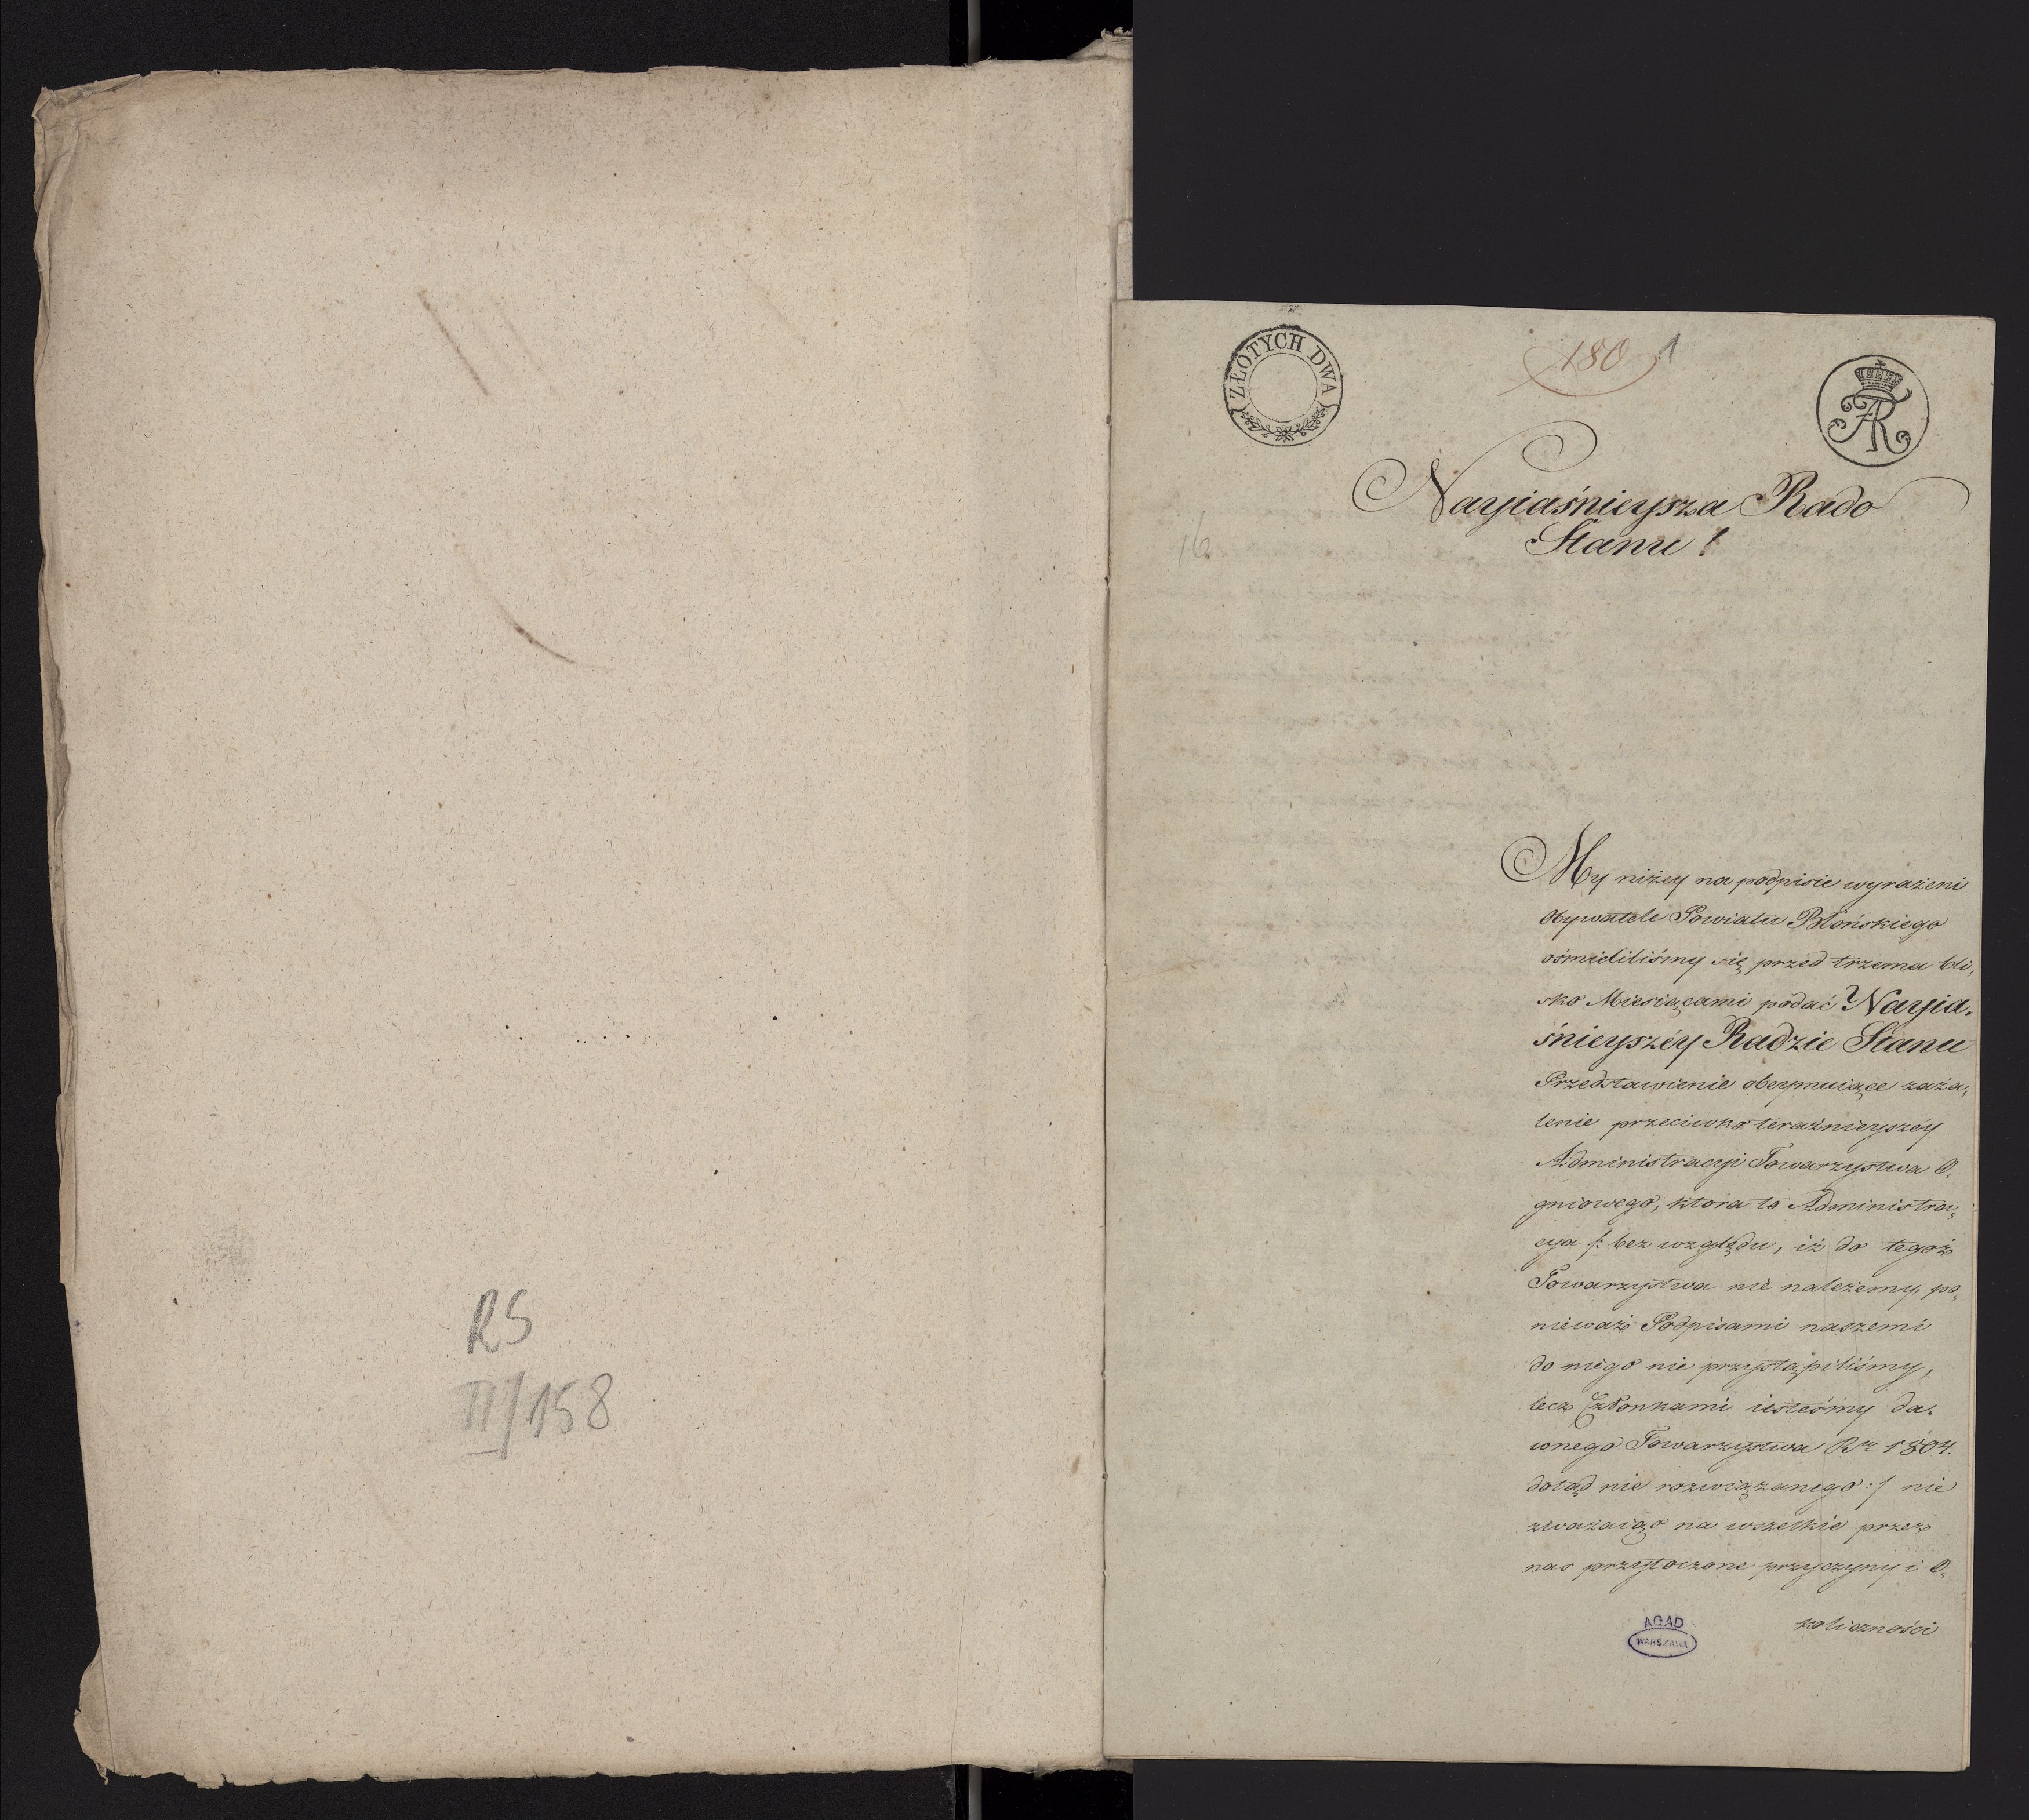 RS
II/158
ZŁOTYCH DWA
180
1
AR
Nayiaśnieysza Rado
Stanu!
16
My niżey na podpisie wyrażeni
Obywatele Powiatu Błońskiego
ośmieliliśmy się przed trzema bli,
sko Miesiącami podać Nayia,
śnieyszéy Radzie Stanu
Przedstawienie obeymuiące zaża,
lenie przeciwko teraźnieyszéy
Administracyi Towarzystwa O,
gniowego, ktora to Administra,
cya /: bez względu, iż do tegoż
Towarzystwa nie należemy, po,
nieważ Podpisami naszemi
do niego nie przystąpiliśmy,
lecz Członkami iesteśmy da,
wnego Towarzystwa Ru 1804.
dotąd nie rozwiązanego :/ nie
zważaiąc na wszelkie przez
nas przytoczone przyczyny i O,
koliczności
AGAD
WARSZAWA